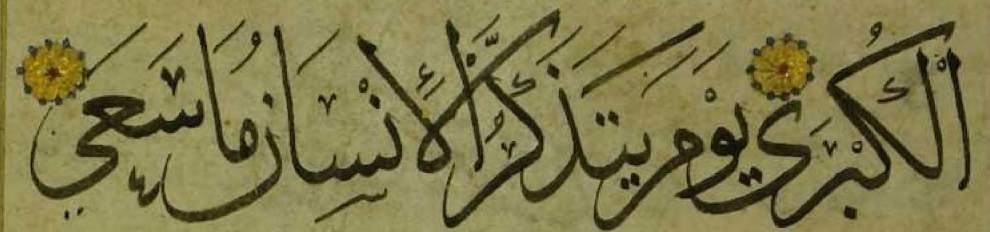 الْكُبْرَى يَوْمَ يَتَذَكَّرُ الْإِنْسَانُ مَا سَعَى